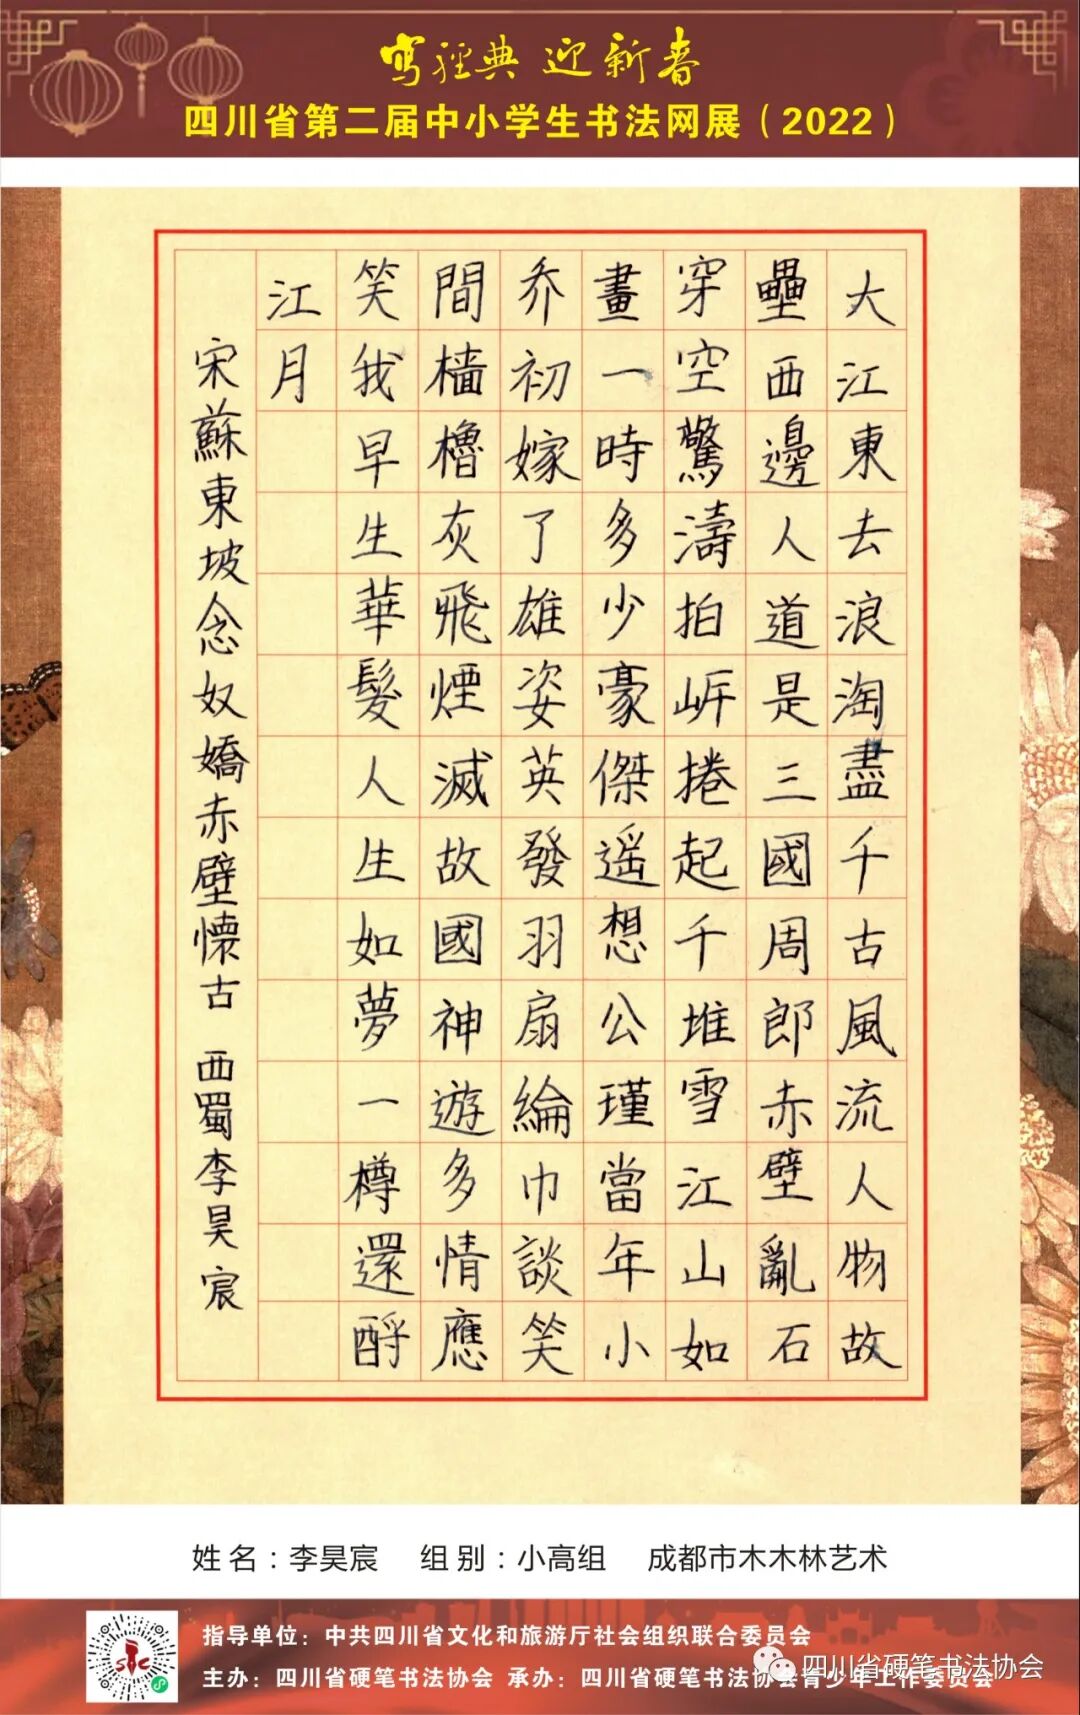 写經典 迎新春
四川省第二届中小学生书法网展（2022）
大江東去浪淘盡千古風流人物故
壘西邊人道是三國周郎赤壁亂石
穿空驚濤拍岍捲起千堆雪江山如
畫一時多少豪傑遥想公瑾當年小
乔初嫁了雄姿英發羽扇綸巾談笑
間檣櫓灰飛煙滅故國神遊多情應
笑我早生華髮人生如夢一樽還酹
江月
宋蘇東坡念奴嬌赤壁懷古 西蜀李昊宸
姓名：李昊宸 组别：小高组 成都市木木林艺术
指导单位：中共四川省文化和旅游厅社会组织联合委员会
主办：四川省硬笔书法协会 承办：四川省硬笔书法协会青少年工作委员会
四川省硬笔书法协会